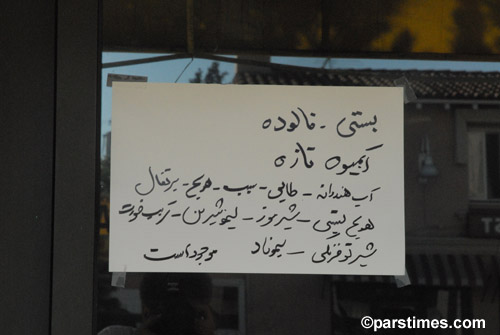 بستنی - فالوده
آبمیوه تازه
آب هندوانه - طالبی - سیب - هویج - پرتقال
هویج بستنی - شیرموز - لیموشیرین - گریپ فروت
شیر توفرنگی - لیموناد موجود است
©parstimes.com